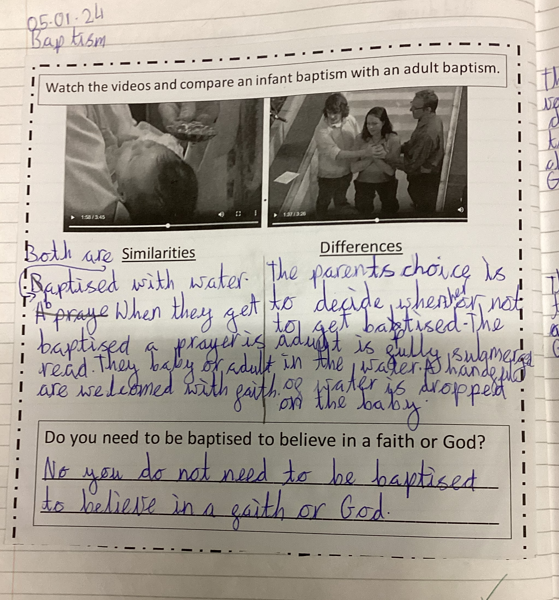 05.01.24
Baptism
Watch the videos and compare an infant baptism with an adult baptism.
1:58 / 3:45
1:37 / 3:26
Both are
Similarities
Baptised with water.
A praye When they get
baptised a prayer is
read. They baby or adult
are welcomed with faith.
Differences
The parents choice is
to decide whenther or not
to get baptised. The
adult is fully submerged
in the water. A handful
of water is dropped
on the baby.
Do you need to be baptised to believe in a faith or God?
No you do not need to be baptised
to believe in a faith or God.